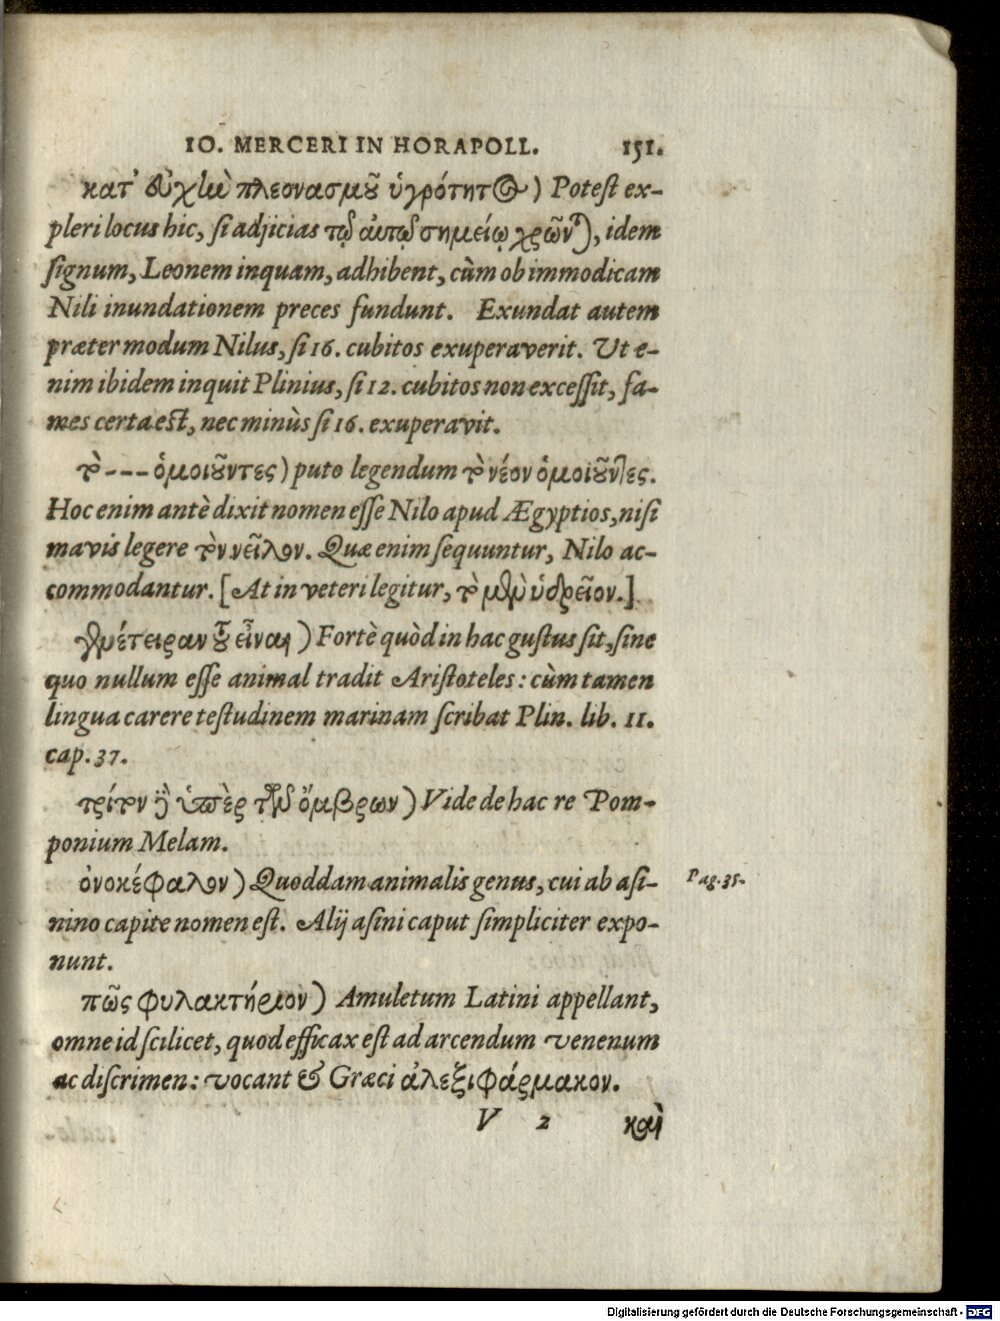 IO. MERCERI IN HORAPOLL. 151.
κατ' εὐχὴν πλεονασμοῦ ὑγρότητος) Potest ex-
pleri locus hic, si adjicias τῷ αὐτῷ σημείῳ χρῶνται), idem
signum, Leonem inquam, adhibent, cùm ob immodicam
Nili inundationem preces fundunt. Exundat autem
præter modum Nilus, si 16. cubitos exuperaverit. Ut e-
nim ibidem inquit Plinius, si 12. cubitos non excessit, fa-
mes certa est, nec minùs si 16. exuperavit.
τὸ --- ὁμοιοῦντες) puto legendum τὸ νέον ὁμοιοῦντες.
Hoc enim antè dixit nomen esse Nilo apud Ægyptios, nisi
mavis legere τὸν νεῖλον. Quæ enim sequuntur, Nilo ac-
commodantur. [At in veteri legitur, τὸ μὲν ὑδρεῖον.]
γευμέτειραν τοῦ εἶναι) Fortè quòd in hac gustus sit, sine
quo nullum esse animal tradit Aristoteles: cùm tamen
lingua carere testudinem marinam scribat Plin. lib. 11.
cap. 37.
τρίτον δὲ ὑπὲρ τῶν ὄμβρων) Vide de hac re Pom-
ponium Melam.
ὀνοκέφαλον) Quoddam animalis genus, cui ab asi-
nino capite nomen est. Alij asini caput simpliciter expo-
nunt.
Pag. 35.
πῶς φυλακτήριον) Amuletum Latini appellant,
omne id scilicet, quod efficax est ad arcendum venenum
ac discrimen: vocant & Græci ἀλεξιφάρμακον.
V 2 καὶ
Digitalisierung gefördert durch die Deutsche Forschungsgemeinschaft - DFG